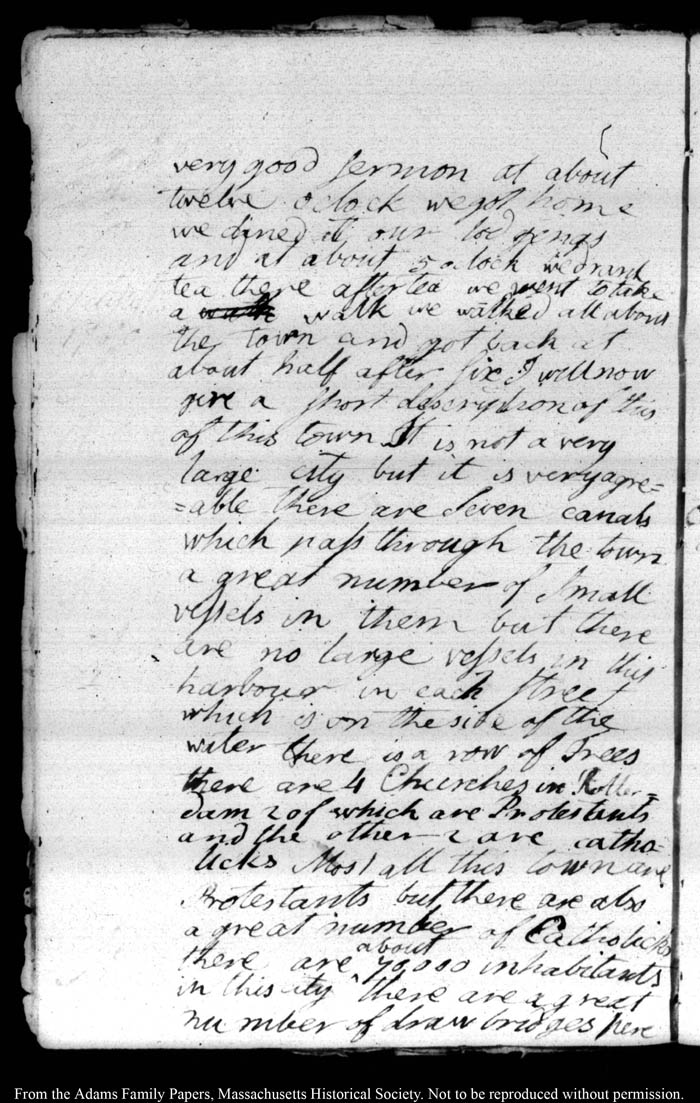 very good sermon at about
twelve oclock we got home
we dined at our lodgengs
and at about 5 oclock we drank
tea there after tea we went to take
a walk walk we walked all about
the town and got back at
about half after six I will now
give a short descryption of this
of this town It is not a very
large city but it is very agre=
=able there are seven canals
which pass through the town
a great number of small
vessels in them but there
are no large vessels in this
harbour in each street
which is on the side of the
water there is a row of Trees
there are 4 Churches in Rotter=
dam 2 of which are Protestants
and the other 2 are catho=
licks Most all this town are
Protestants but there are also
a great number of Catholicks
there are about 70,000 inhabitants
in this city there are a great
number of draw bridges here
From the Adams Family Papers, Massachusetts Historical Society. Not to be reproduced without permission.